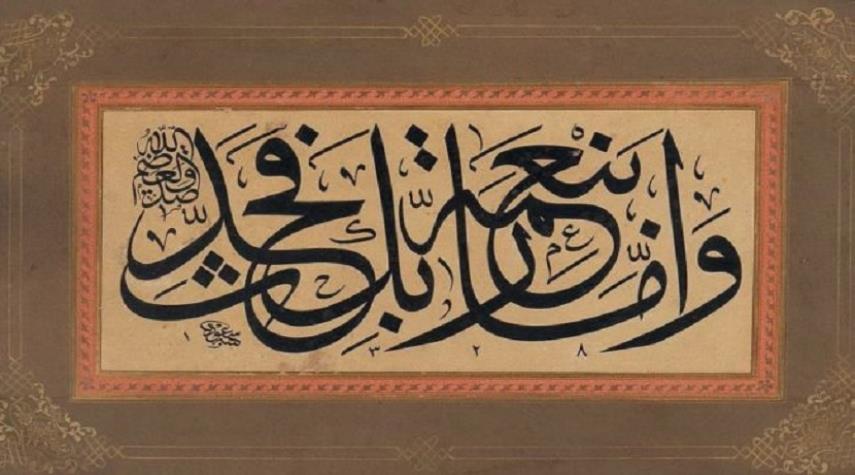 وَاَمَّا بنعمة ربّك فحدّث
صدق الله العظيم
١ ٣ ٢ ٨